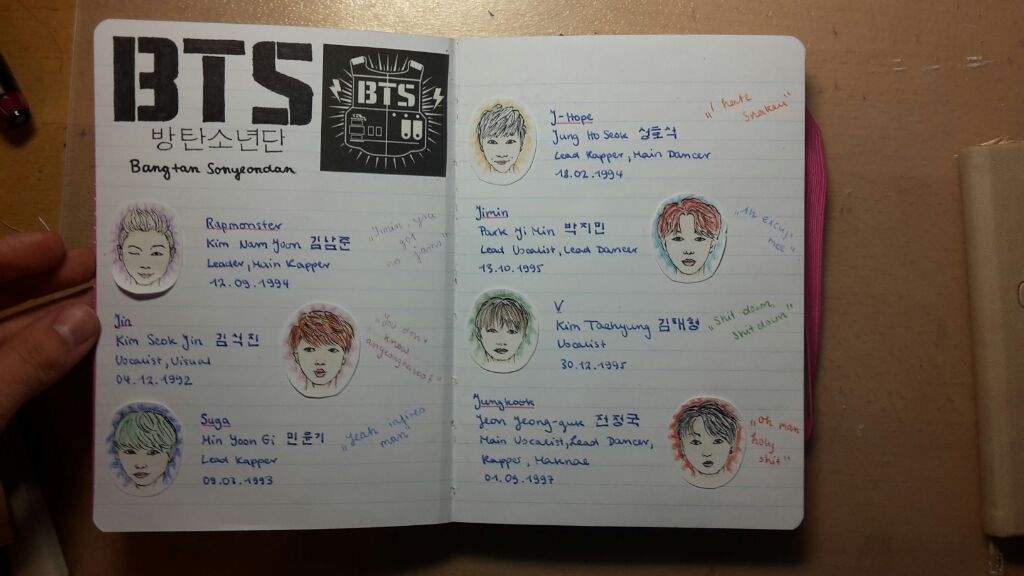 BTS
방탄소년단
Bangtan Sonyeondan
BTS
Rapmonster
Kim Nam Joon 김남준
Leader, Main Rapper
12.09.1994
„Jimin, you
got
no jams"
Jin
Kim Seok Jin 김석진
Vocalist, Visual
04.12.1992
„You don't
know
Suga
Min Yoon Gi 민윤기
Lead Rapper
09.03.1993
„Yeah infires
man"
J-Hope
Jung Ho Seok 정호석
Lead Rapper, Main Dancer
18.02.1994
„I hate
snakeu"
Jimin
Park Ji Min 박지민
Lead Vocalist, Lead Dancer
13.10.1995
mee"
V
Kim Taehyung 김태형
Vocalist
30.12.1995
„Shit down,
shit down"
Jungkook
Jeon Jeong-guk 전정국
Main Vocalist, Lead Dancer,
Rapper, Maknae
01.09.1997
„Oh man
holy
shit"